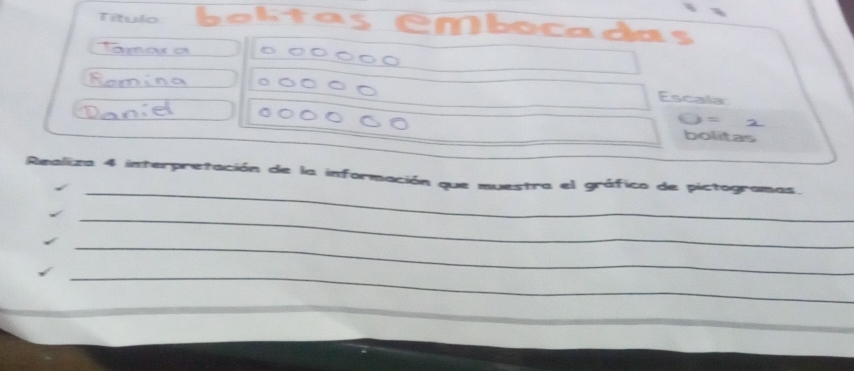 Titulo bolitas embocadas
Tamara
Romina
Daniel
Escala:
= 2
bolitas
Realiza 4 interpretación de la información que muestra el gráfico de pictogramas.